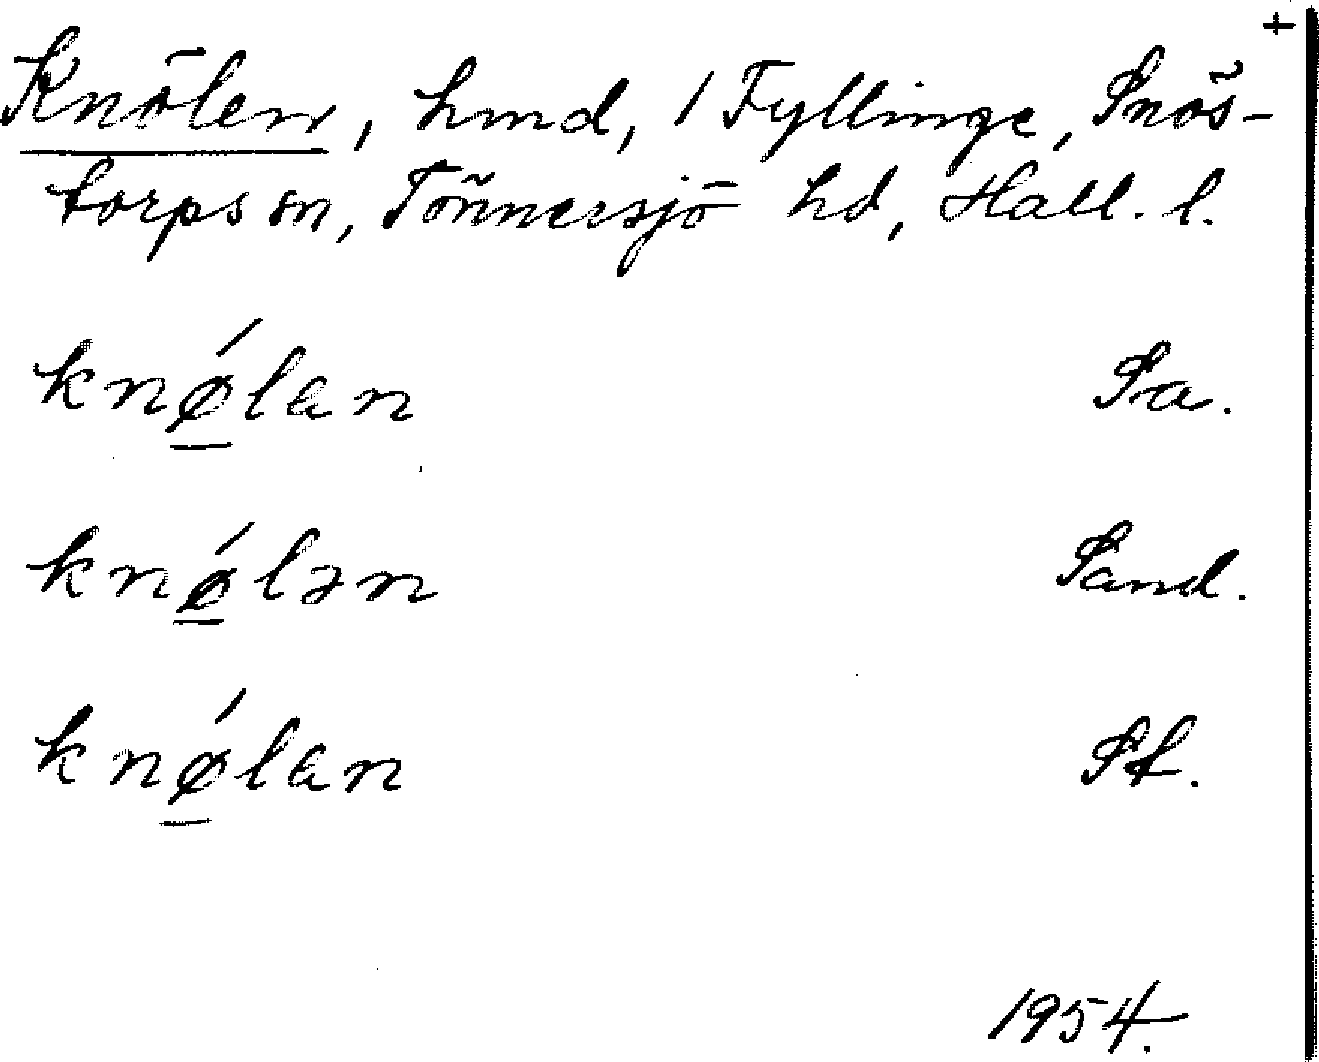 +
Knölen, hmd, 1 Fyllinge, Snös-
torps sn, Tönnersjö hd, Hall. l.
knǿ̲lan Sa.
knǿ̲lən Sand.
knǿ̲lan St.
1954.